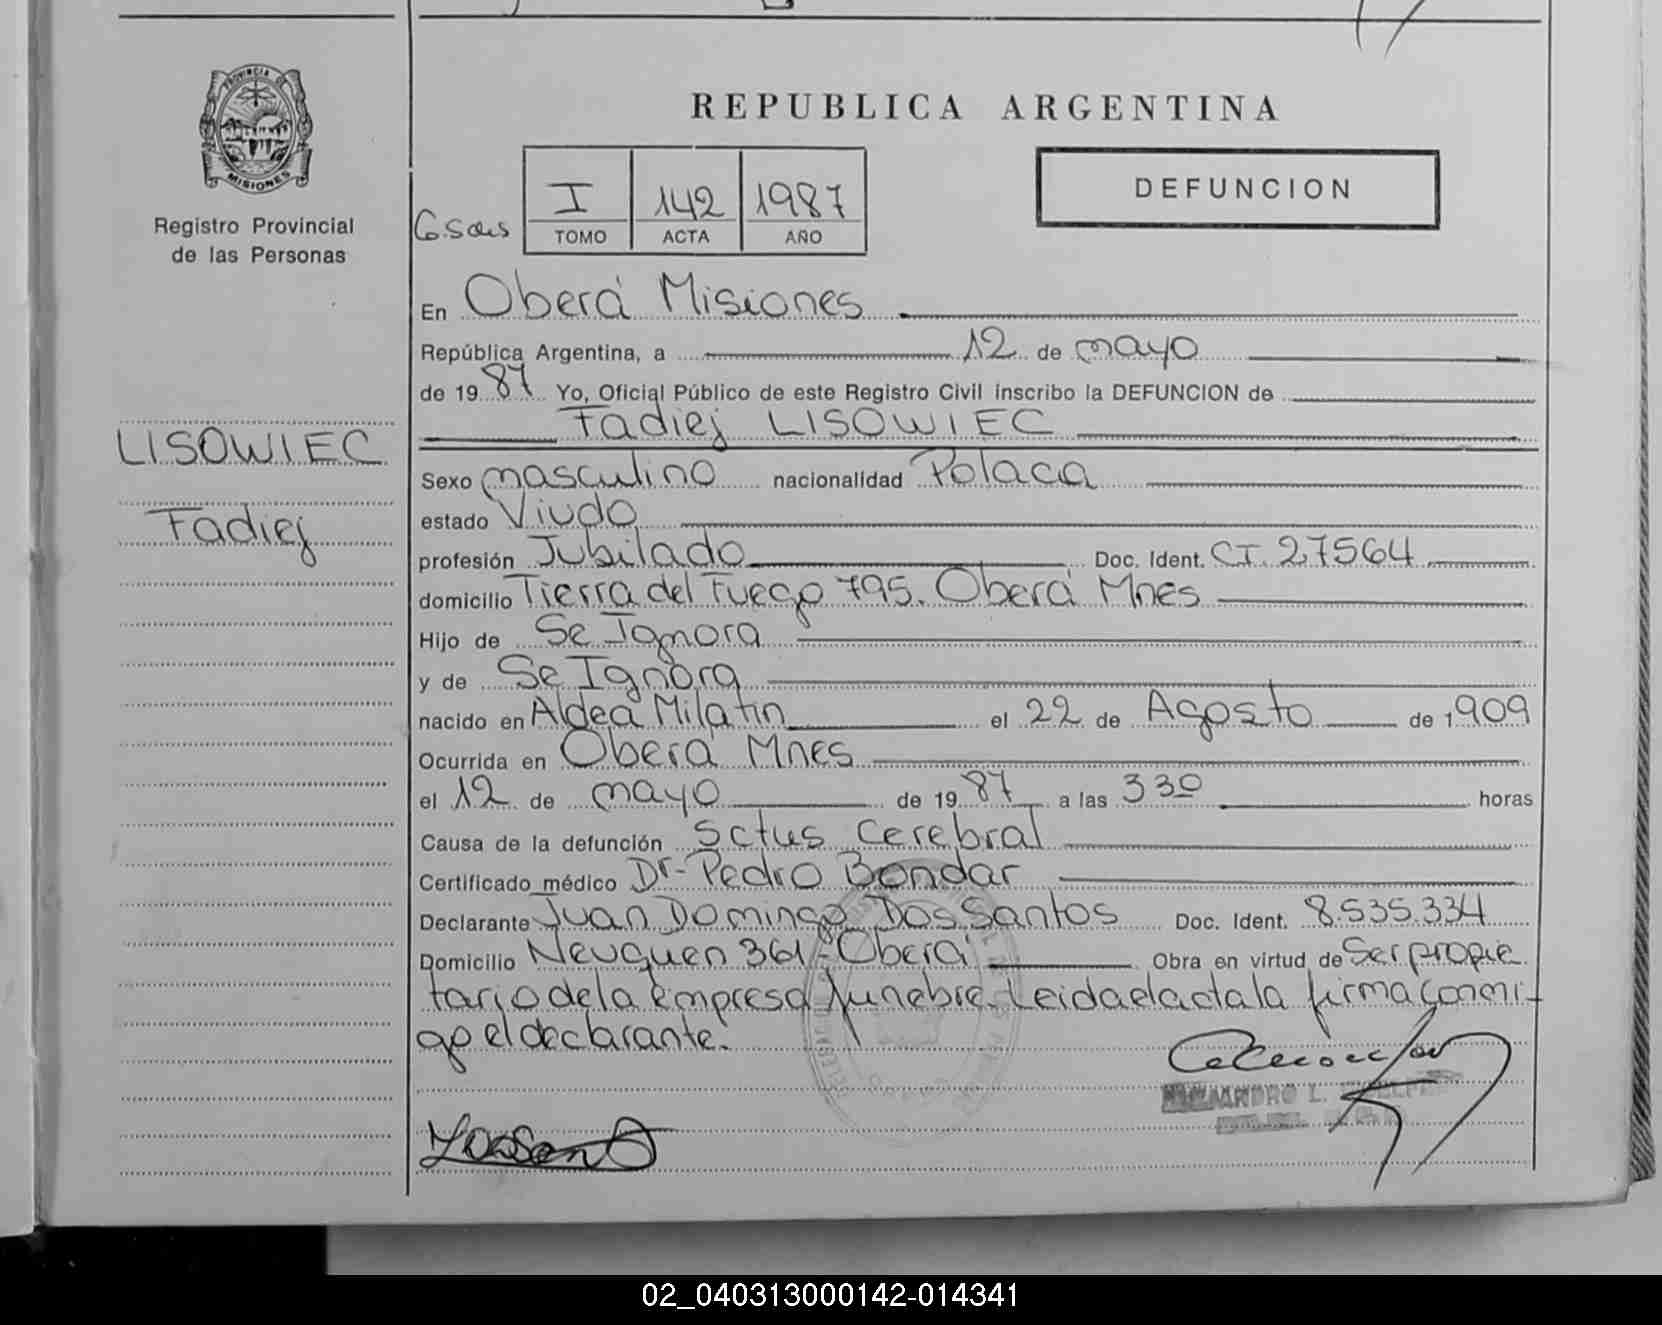 PROVINCIA DE
MISIONES
Registro Provincial
de las Personas
LISOWIEC
Fadiej
REPUBLICA ARGENTINA
I 142 1987
TOMO ACTA AÑO
DEFUNCION
En Oberá Misiones
República Argentina, a 12 de mayo
de 19 87 Yo, Oficial Público de este Registro Civil inscribo la DEFUNCION de
Fadiej LISOWIEC
Sexo masculino nacionalidad Polaca
estado Viudo
profesión Jubilado Doc. Ident. CI. 27564
domicilio Tierra del Fuego 795. Oberá Mnes
Hijo de Se Ignora
y de Se Ignora
nacido en Aldea Milatin el 22 de Agosto de 1909
Ocurrida en Oberá Mnes
el 12 de mayo de 19 87 a las 330 horas
Causa de la defunción Sctus Cerebral
Certificado médico Dr- Pedro Bondar
Declarante Juan Domingo Dos Santos Doc. Ident. 8.535.334
Domicilio Neuquen 361-Oberá Obra en virtud de Ser propie
tario de la empresa funebre. Leida el acta la firma conmi-
go el declarante.
02_040313000142-014341